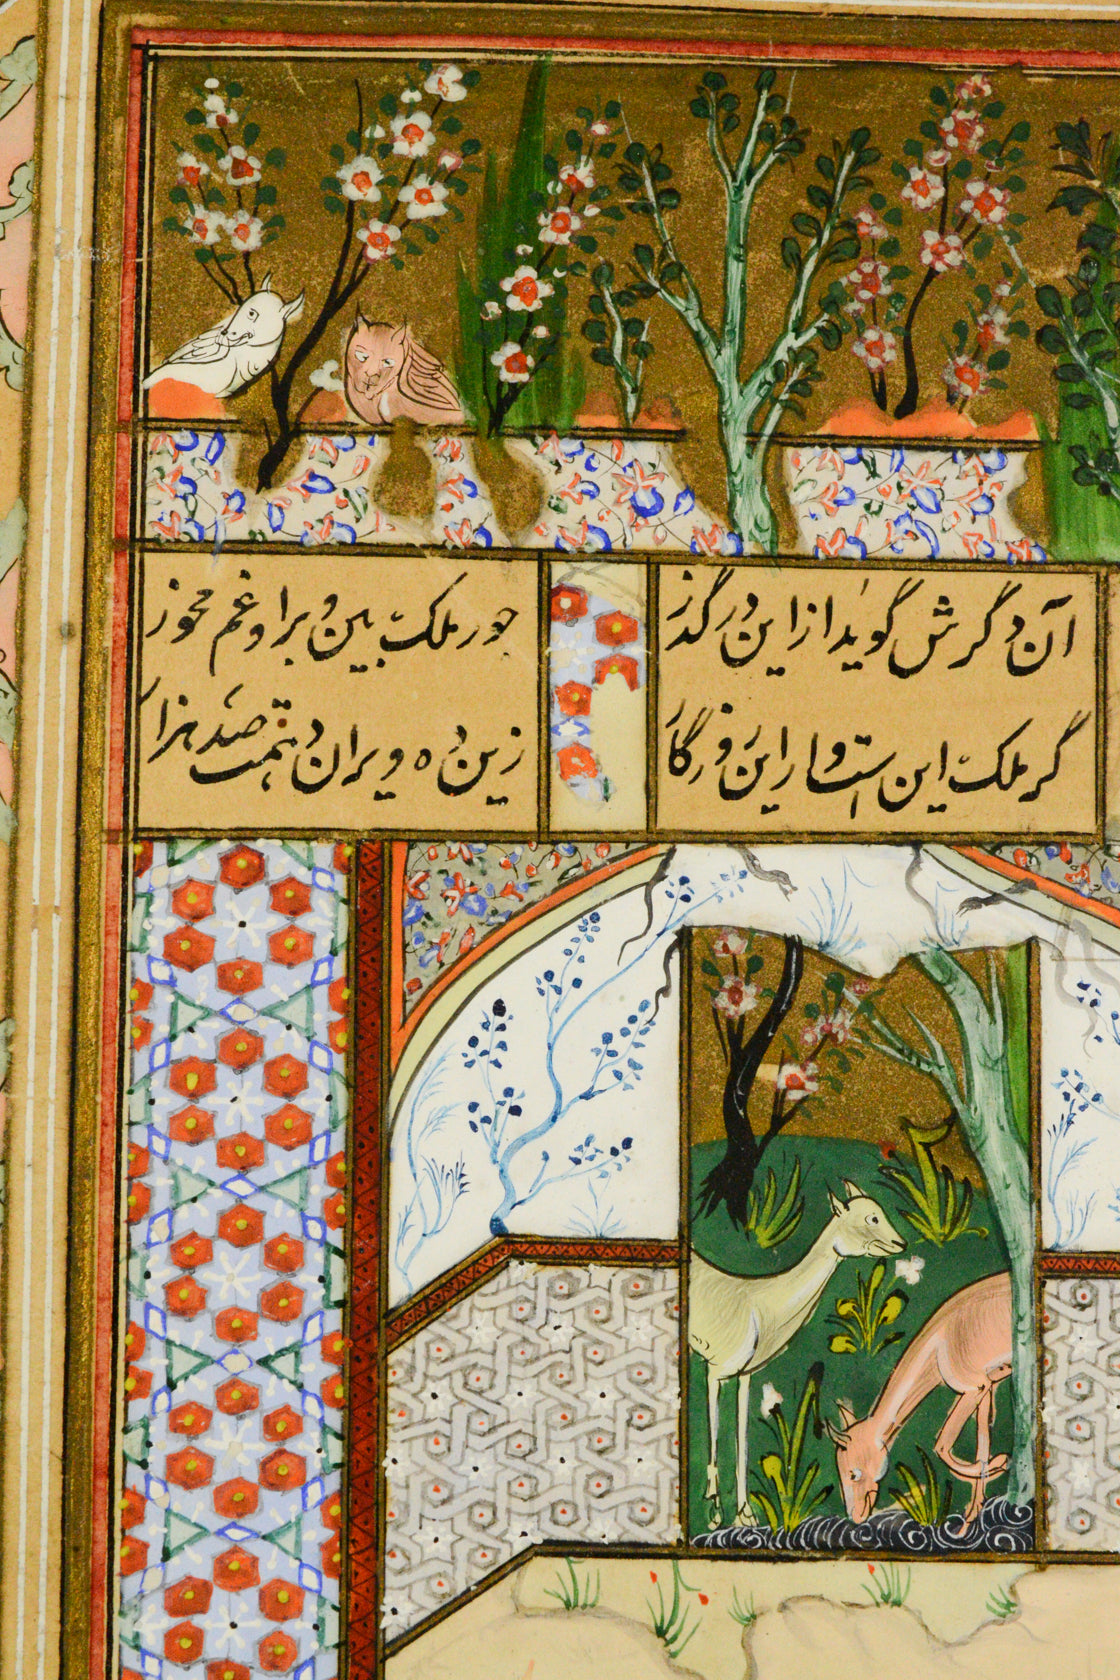 آن دگرش گوید از این در گذر
جور ملک بین و برا و غم مخور
گر ملک این است و این روزگار
زین ده ویران دهمت صد هزار